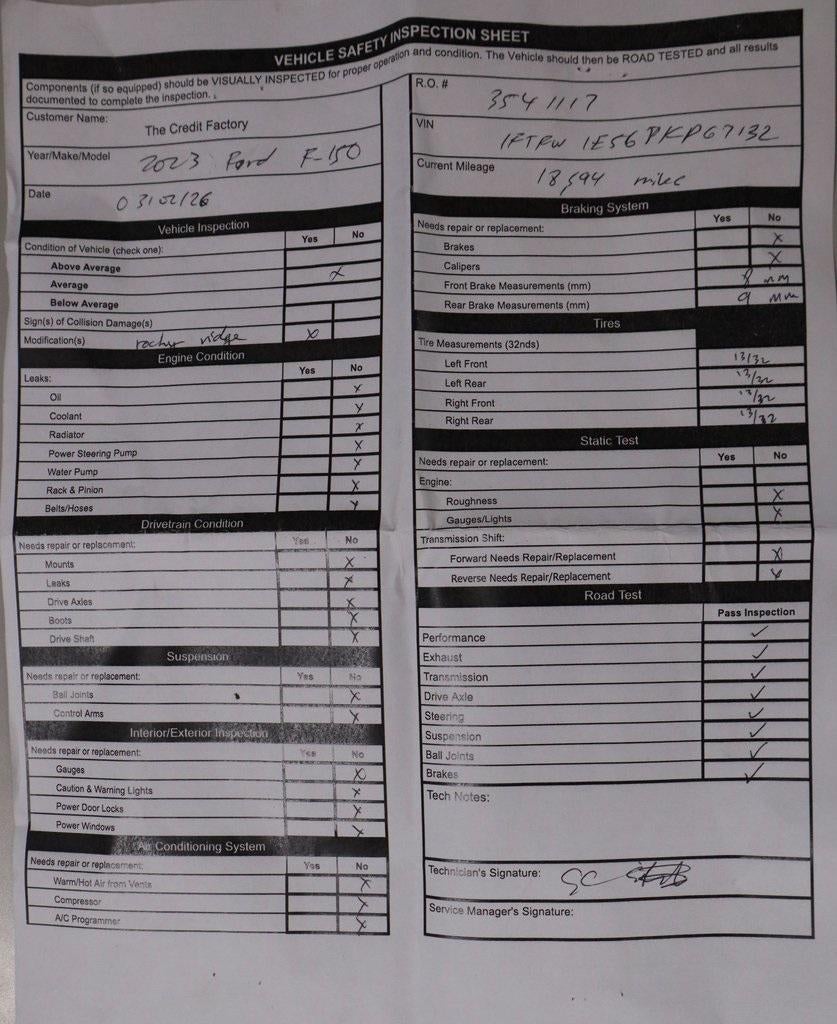 VEHICLE SAFETY INSPECTION SHEET
Components (if so equipped) should be VISUALLY INSPECTED for proper operation and condition. The Vehicle should then be ROAD TESTED and all results
documented to complete the inspection.
Customer Name: The Credit Factory
Year/Make/Model 2023 Ford F-150
Date
Vehicle Inspection
Condition of Vehicle (check one): Yes No
Above Average
Average X
Below Average
Sign(s) of Collision Damage(s)
Modification(s) rocky ridge X
Engine Condition
Leaks: Yes No
Oil X
Coolant X
Radiator X
Power Steering Pump X
Water Pump X
Rack & Pinion X
Belts/Hoses X
Drivetrain Condition
Needs repair or replacement: Yes No
Mounts X
Leaks X
Drive Axles X
Boots X
Drive Shaft X
Suspension
Needs repair or replacement: Yes No
Ball Joints X
Control Arms X
Interior/Exterior Inspection
Needs repair or replacement: Yes No
Gauges X
Caution & Warning Lights X
Power Door Locks X
Power Windows X
Air Conditioning System
Needs repair or replacement: Yes No
Warm/Hot Air from Vents X
Compressor X
A/C Programmer X
R.O. # 3541117
VIN 1FTFW1E56PKP67132
Current Mileage 18,594 miles
Braking System
Needs repair or replacement: Yes No
Brakes X
Calipers X
Front Brake Measurements (mm) 8 mm
Rear Brake Measurements (mm) 9 mm
Tires
Tire Measurements (32nds)
Left Front 13/32
Left Rear 13/32
Right Front 13/32
Right Rear 13/32
Static Test
Needs repair or replacement: Yes No
Engine:
Roughness X
Gauges/Lights X
Transmission Shift:
Forward Needs Repair/Replacement X
Reverse Needs Repair/Replacement X
Road Test
Pass Inspection
Performance ✓
Exhaust ✓
Transmission ✓
Drive Axle ✓
Steering ✓
Suspension ✓
Ball Joints ✓
Brakes ✓
Tech Notes:
Technician's Signature:
Service Manager's Signature: